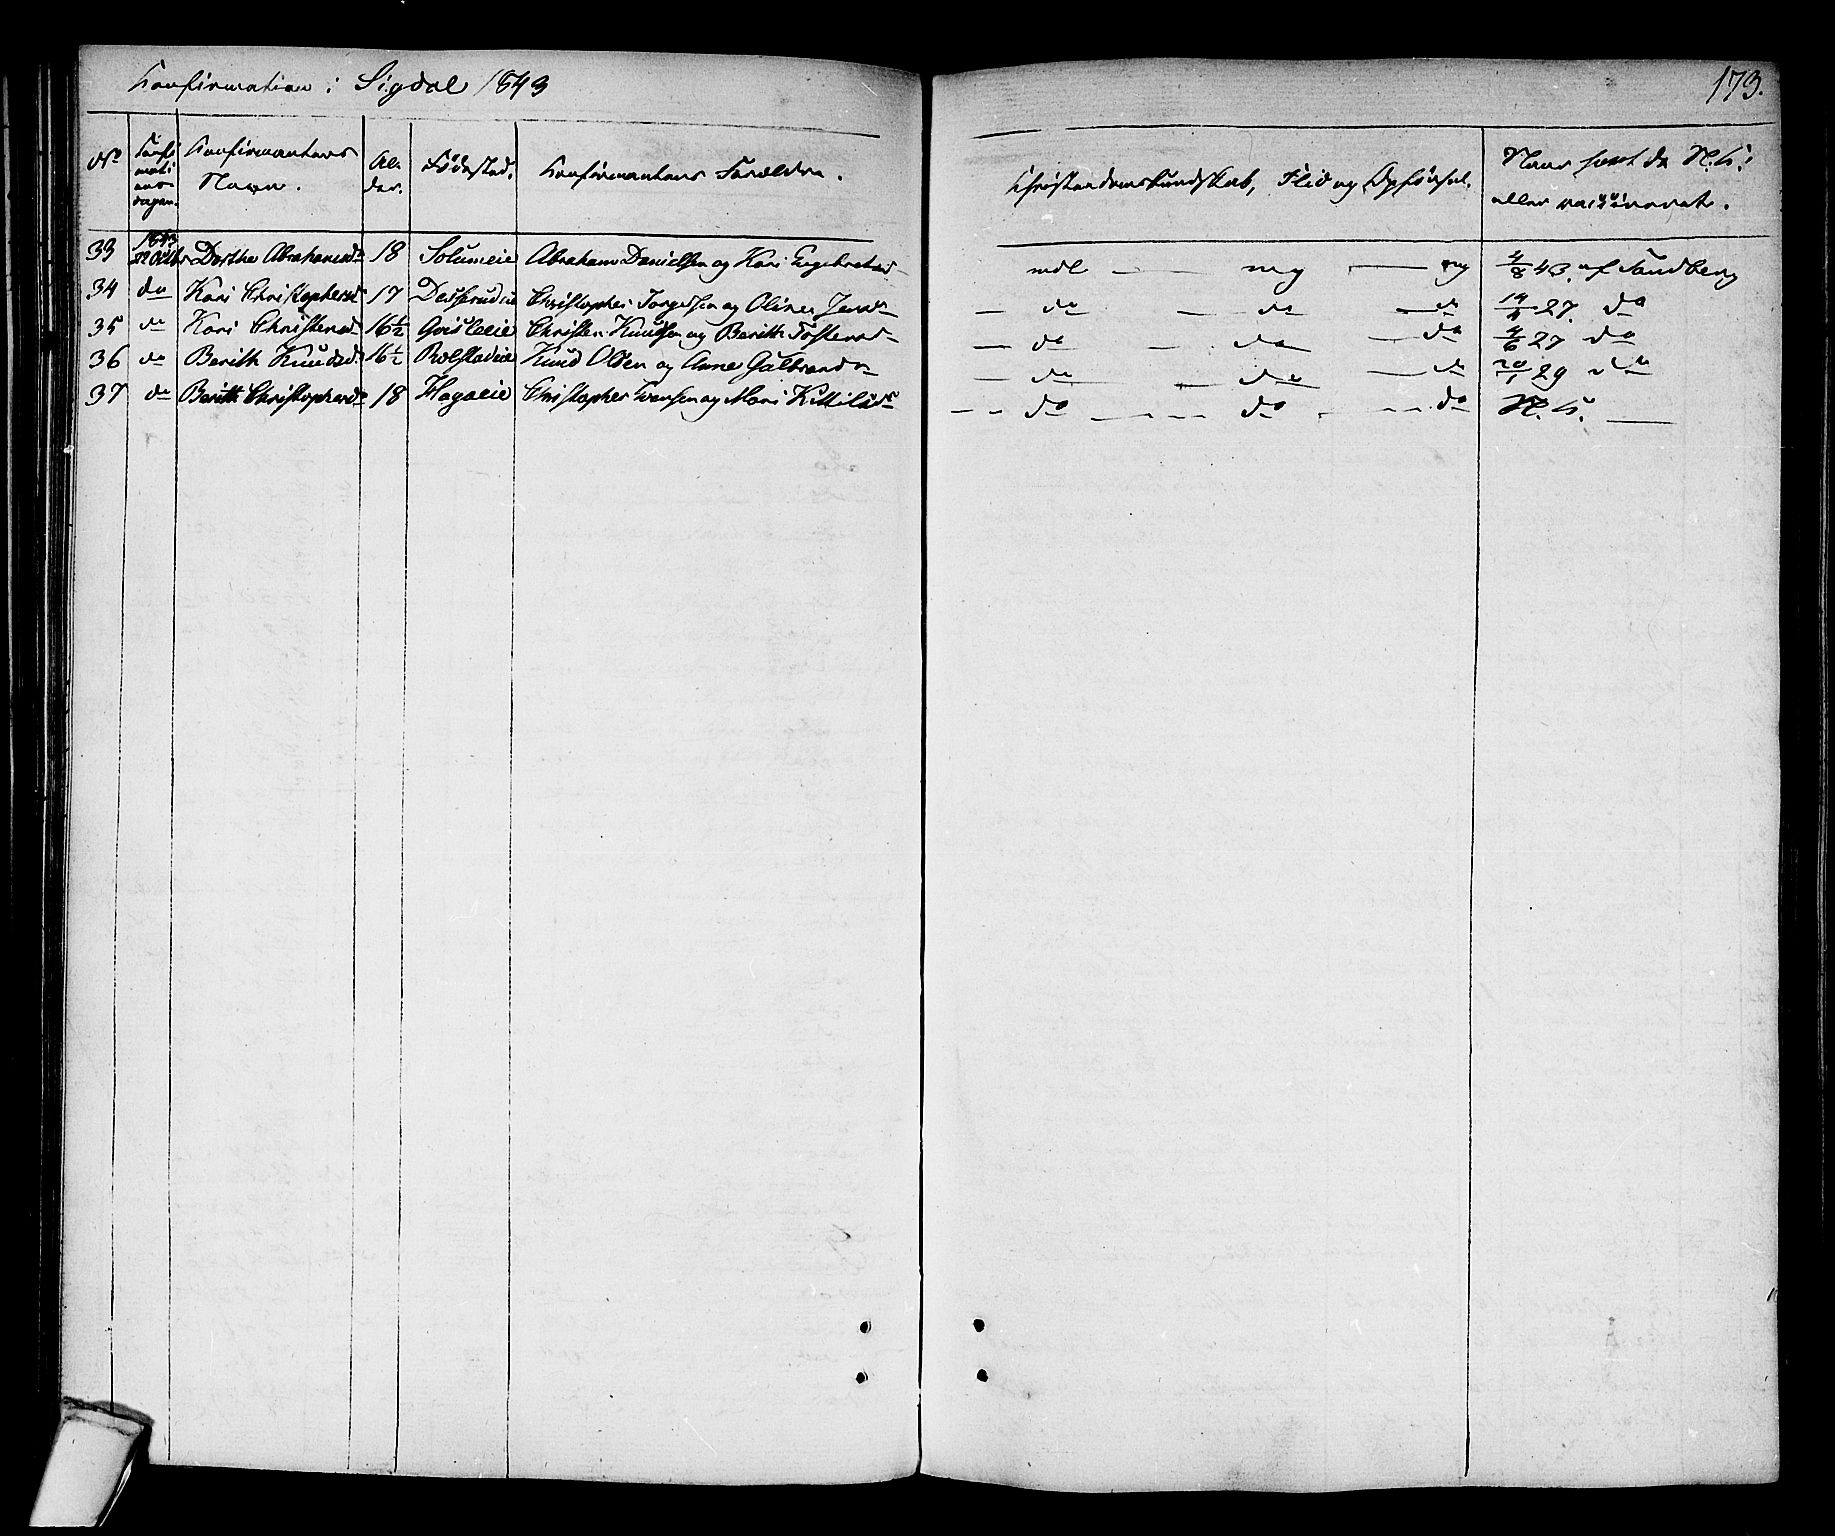 Confirmation i Sigdal 1843
173.
No
Confirmationsdagen.
Confirmantens Navn.
Alder.
Fødested.
Confirmantens Forældre.
Christendomskundskab, Flid og Opførsel.
Naar havt de N. K. eller vaccineret.
33 1843 Dorthe Abrahamsd. 18 Solumeie Abraham Danielsen og Kari Engebretsd. mdl — mg — mg 4/8 43. af Sandberg
34 do Kari Christophersd 17 Christopher Torgersen og Oline do do do 27. do
35 do Kari Christensd 16½ Christen Knudsen og Berith Tostensd do do do 4/6 27 do
36 do Berith Knudsd 16½ Rolstadeie Knud Olsen og Anne Gulbrandsd do do do 20/1 29 do
37 do Berith Christophersd 18 Hagaeie Christopher Iversen og Mari Kittilsd do do do N. K. —